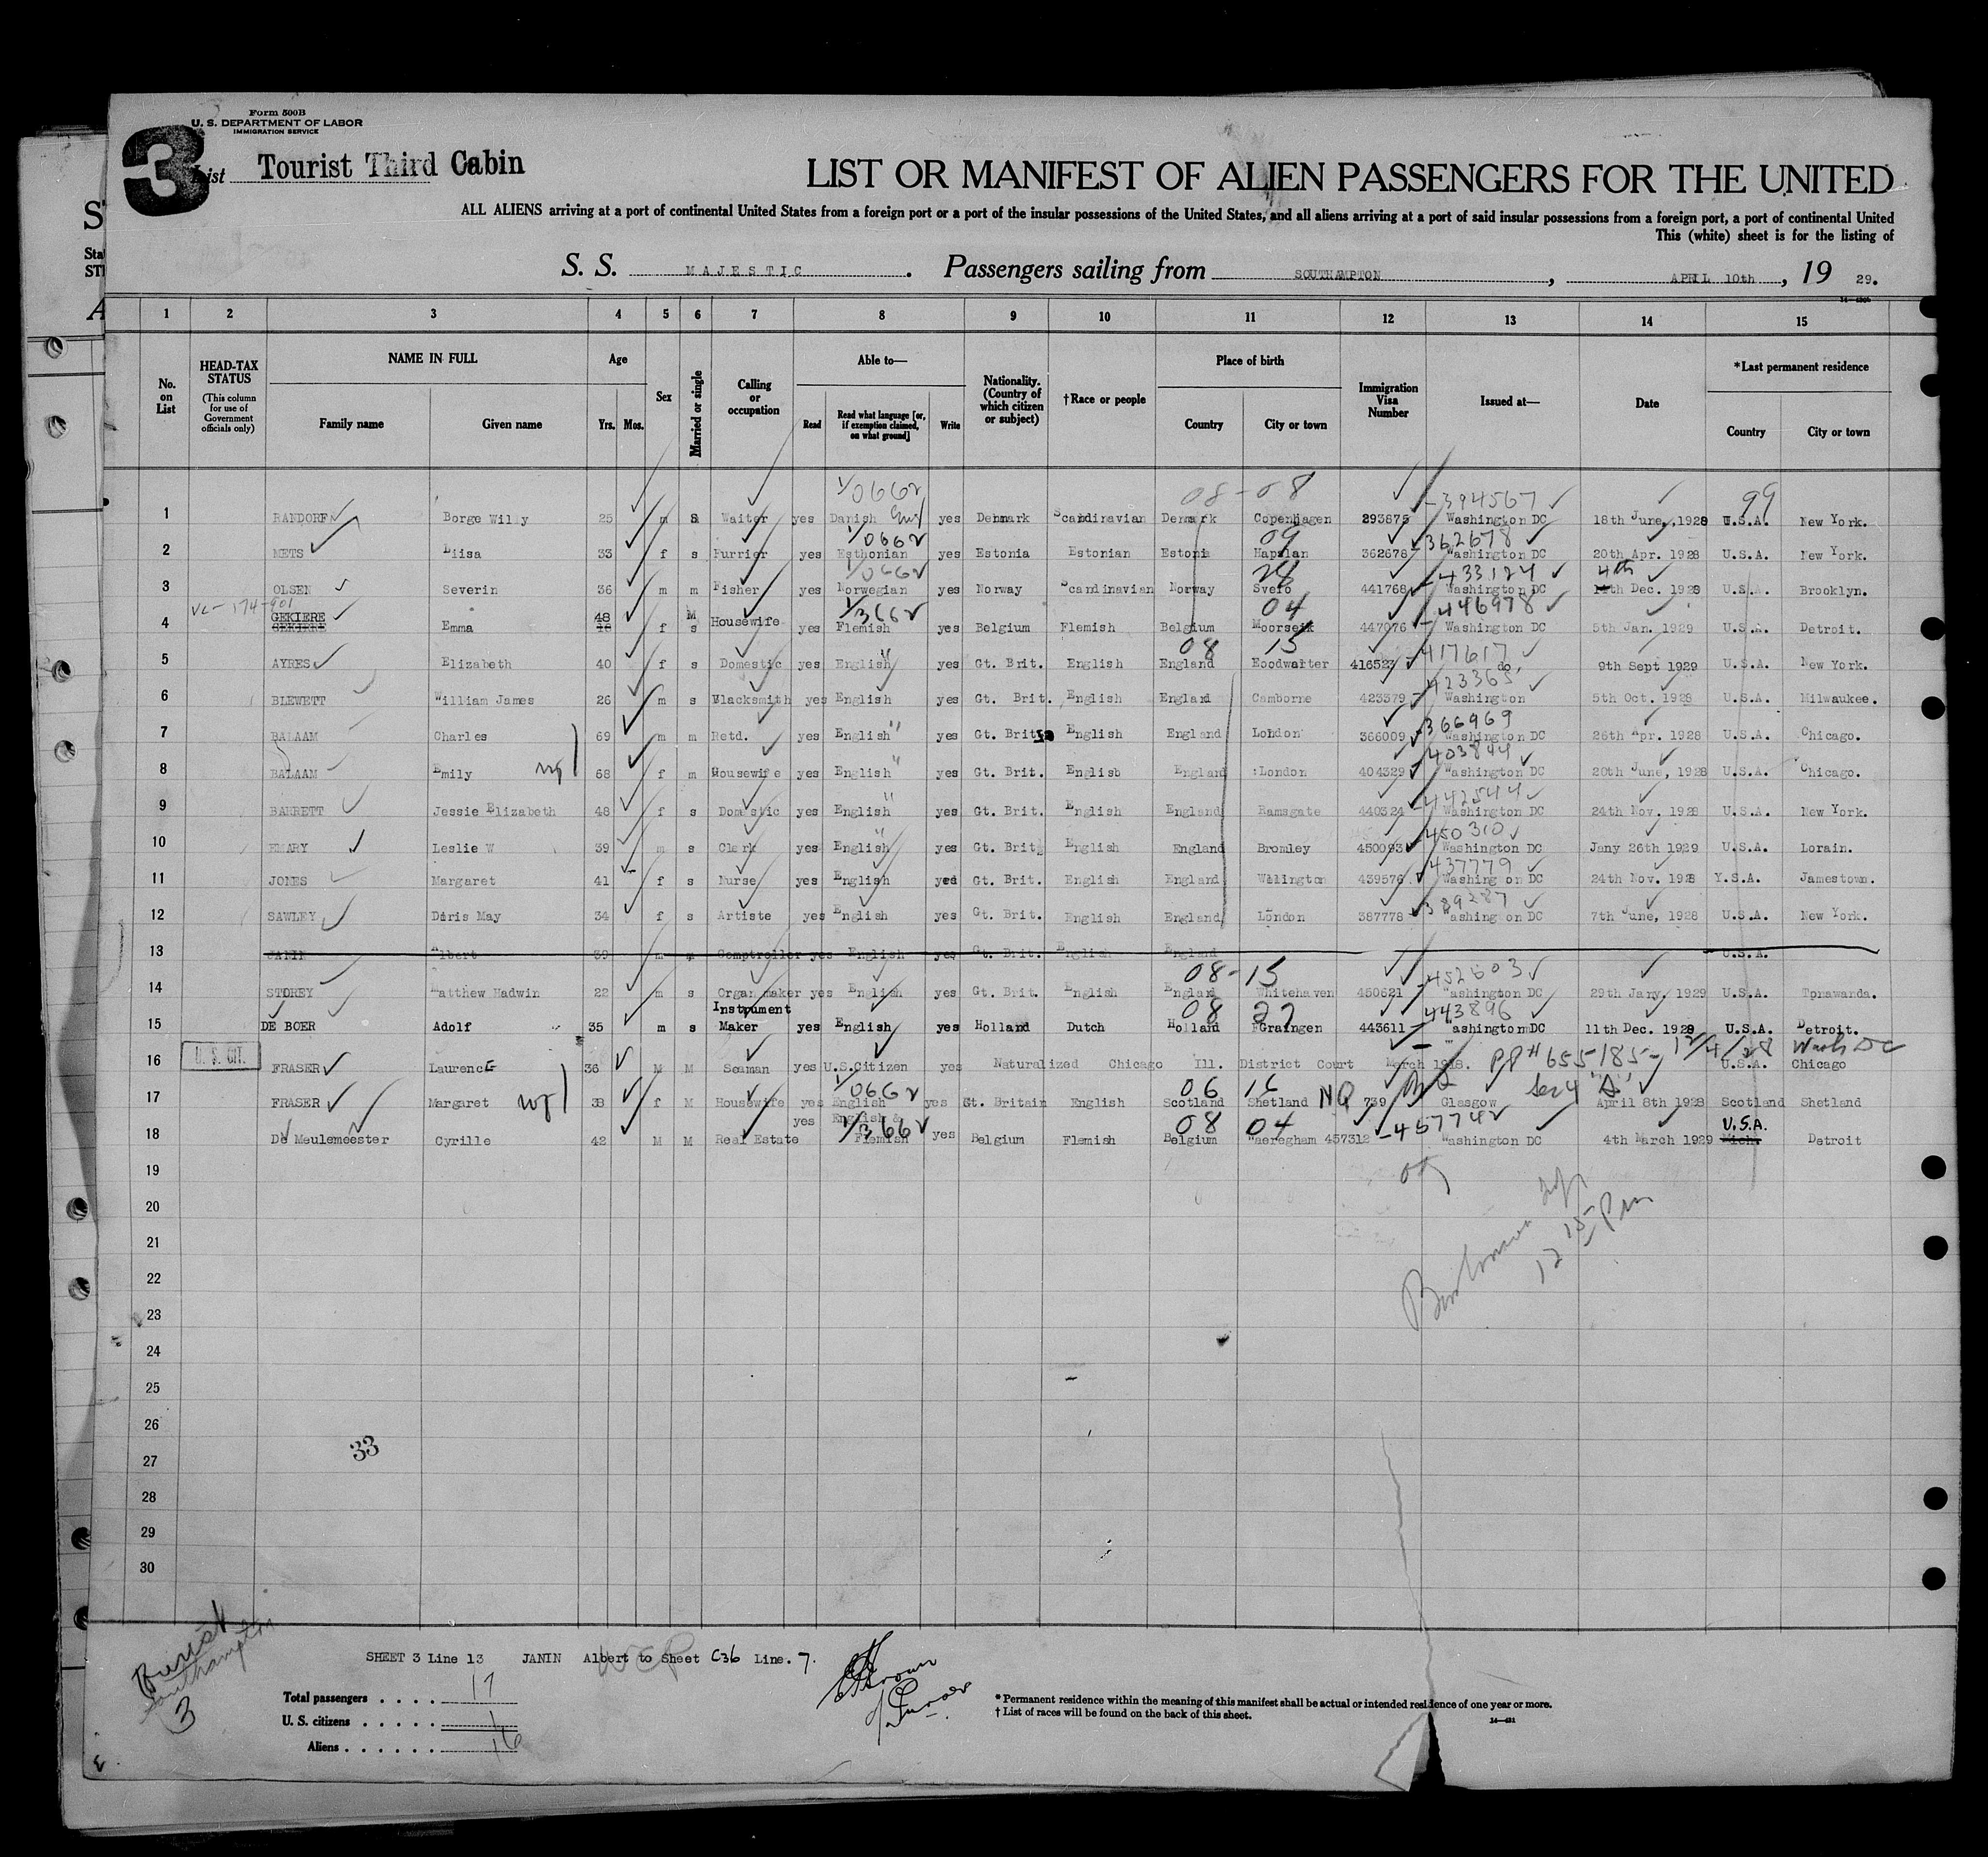 Form 500B
U. S. DEPARTMENT OF LABOR
IMMIGRATION SERVICE
3
List Tourist Third Cabin
LIST OR MANIFEST OF ALIEN PASSENGERS FOR THE UNITED
ALL ALIENS arriving at a port of continental United States from a foreign port or a port of the insular possessions of the United States, and all aliens arriving at a port of said insular possessions from a foreign port, a port of continental United
This (white) sheet is for the listing of
S. S. MAJESTIC. Passengers sailing from SOUTHAMPTON, APRIL 10th, 19 29.
1 2 3 4 5 6 7 8 9 10 11 12 13 14 15
No. on List
HEAD-TAX STATUS
(This column for use of Government officials only)
NAME IN FULL
Family name Given name
Age
Yrs. Mos.
Sex
Married or single
Calling or occupation
Able to—
Read
Read what language [or, if exemption claimed, on what ground]
Write
Nationality. (Country of which citizen or subject)
†Race or people
Place of birth
Country City or town
Immigration Visa Number
Issued at—
Date
*Last permanent residence
Country City or town
1/0662 08-08 -394567 99
1 RANDORF Borge Willy 25 m S Waiter yes Danish yes Denmark Scandinavian Denmark Copenhagen 293875 Washington DC 18th June, 1928 U.S.A. New York.
1/0662 09 -362678
2 METS Liisa 33 f s Furrier yes Esthonian yes Estonia Estonian Estonia Hapslan 362678 Washington DC 20th Apr. 1928 U.S.A. New York.
1/0662 28 -433124 4th
3 OLSEN Severin 36 m m Fisher yes Norwegian yes Norway Scandinavian Norway Svelo 441768 Washington DC Dec. 1928 U.S.A. Brooklyn.
VL-174-901
GEKIERE 48 M 1/3662 04 -446978
4 GEKIERE Emma f s Housewife yes Flemish yes Belgium Flemish Belgium Moorseik 447076 Washington DC 5th Jan. 1929 U.S.A. Detroit.
08 15 417617
5 AYRES Elizabeth 40 f s Domestic yes English yes Gt. Brit. English England Eoodwarter 416527 do 9th Sept 1929 U.S.A. New York.
423365
6 BLEWETT William James 26 m s Blacksmith yes English yes Gt. Brit. English England Camborne 423379 Washington 5th Oct. 1928 U.S.A. Milwaukee.
366969
7 BALAAM Charles 69 m m Retd. yes English yes Gt. Brit. English England London 366009 Washington DC 26th Apr. 1928 U.S.A. Chicago.
403844
8 BALAAM Emily wf 68 f m Housewife yes English yes Gt. Brit. English England London 404329 Washington DC 20th June, 1928 U.S.A. Chicago.
442544
9 BARRETT Jessie Elizabeth 48 f s Domestic yes English yes Gt. Brit. English England Ramsgate 440324 Washington DC 24th Nov. 1928 U.S.A. New York.
450310
10 EMARY Leslie W 39 m s Clerk yes English yes Gt. Brit. English England Bromley 450093 Washington DC Jany 26th 1929 U.S.A. Lorain.
437779
11 JONES Margaret 41 f s Nurse yes English yes Gt. Brit. English England Wellington 439576 Washington DC 24th Nov. 1928 Y.S.A. Jamestown.
389287
12 SAWLEY Doris May 34 f s Artiste yes English yes Gt. Brit. English England London 387778 Washington DC 7th June, 1928 U.S.A. New York.
13 JANIN Albert 39 m m Comptroller yes English yes Gt. Brit. English England U.S.A.
08-15 -452603
14 STOREY Matthew Hadwin 22 m s Organ maker yes English yes Gt. Brit. English England Whitehaven 450621 Washington DC 29th Jany. 1929 U.S.A. Tonawanda.
Instrument 08 27 443896
15 DE BOER Adolf 35 m s Maker yes English yes Holland Dutch Holland Graingen 443611 ashington DC 11th Dec. 1928 U.S.A. Detroit.
U. S. CIT.
16 FRASER Laurence 36 M M Seaman yes U.S.Citizen yes Naturalized Chicago Ill. District Court March 1918. PP# 655185- 12/4/28 Wash DC U.S.A. Chicago
1/0662 06 16 NQ Sec 4 "A"
17 FRASER Margaret wf 38 f M Housewife yes English yes Gt. Britain English Scotland Shetland 739 Glasgow April 8th 1928 Scotland Shetland
yes English & 1/3662 08 04 -457742 U.S.A.
18 De Meulemeester Cyrille 42 M M Real Estate Flemish yes Belgium Flemish Belgium Waeregham 457312 Washington DC 4th March 1929 Mich. Detroit
19
20
21
12 15 Pm
22
23
24
25
26
33
27
28
29
30
SHEET 3 Line 13 JANIN Albert to sheet C36 Line. 7.
Southampton
3
Total passengers . . . . 17
U. S. citizens . . . . . 1
Aliens . . . . . . 16
* Permanent residence within the meaning of this manifest shall be actual or intended residence of one year or more.
† List of races will be found on the back of this sheet.